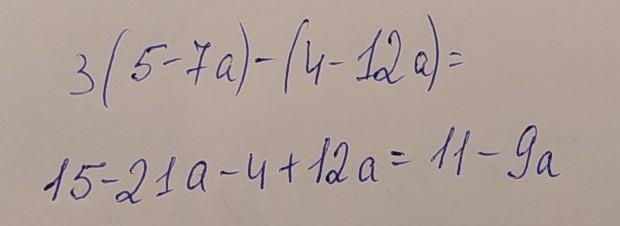 3(5-7a)-(4-12a)=
15-21a-4+12a=11-9a